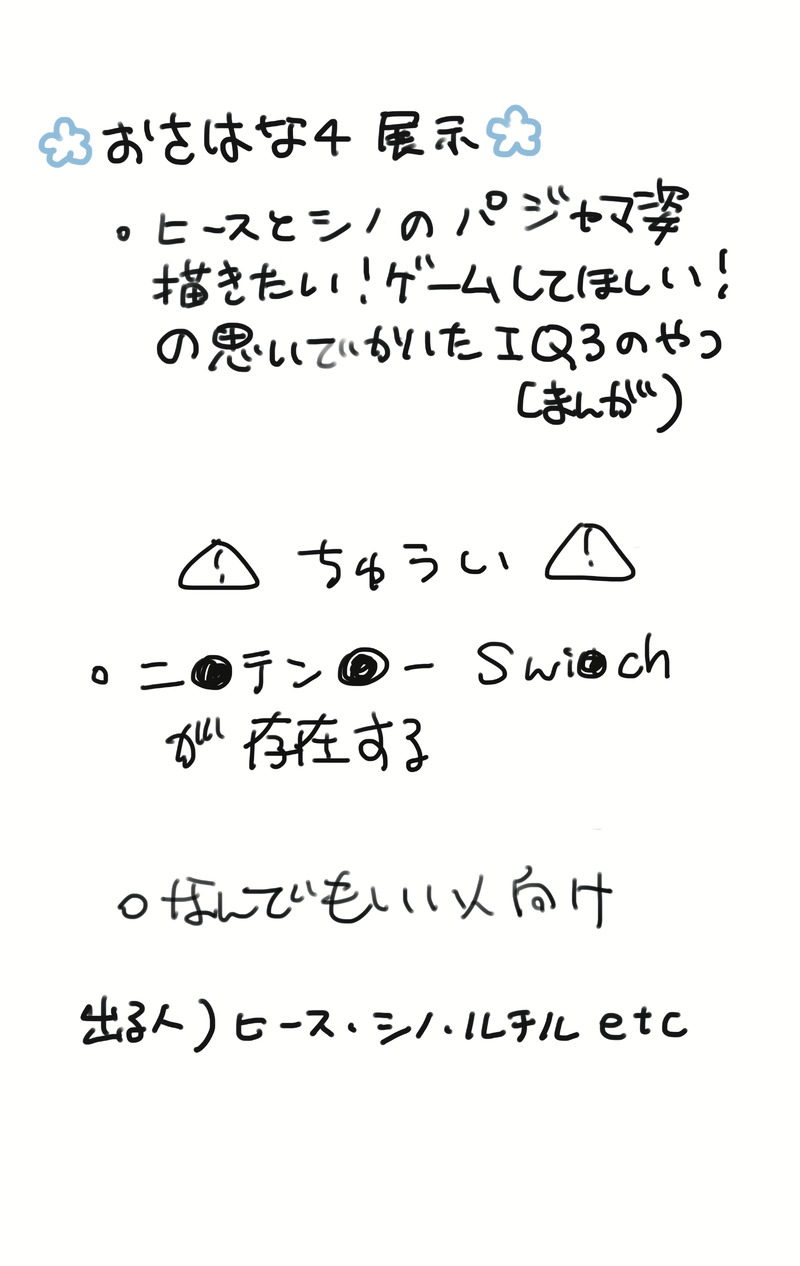 おさはな4 展示
。ヒースとシノのパジャマ姿
描きたい!ゲームしてほしい!
の思いでかいたIQ3のやつ
(まんが)
⚠ ちゅうい ⚠
。ニ●テン●ー Swi●ch
が存在する
○なんでもいい人向け
出る人)ヒース・シノ・ルチル etc